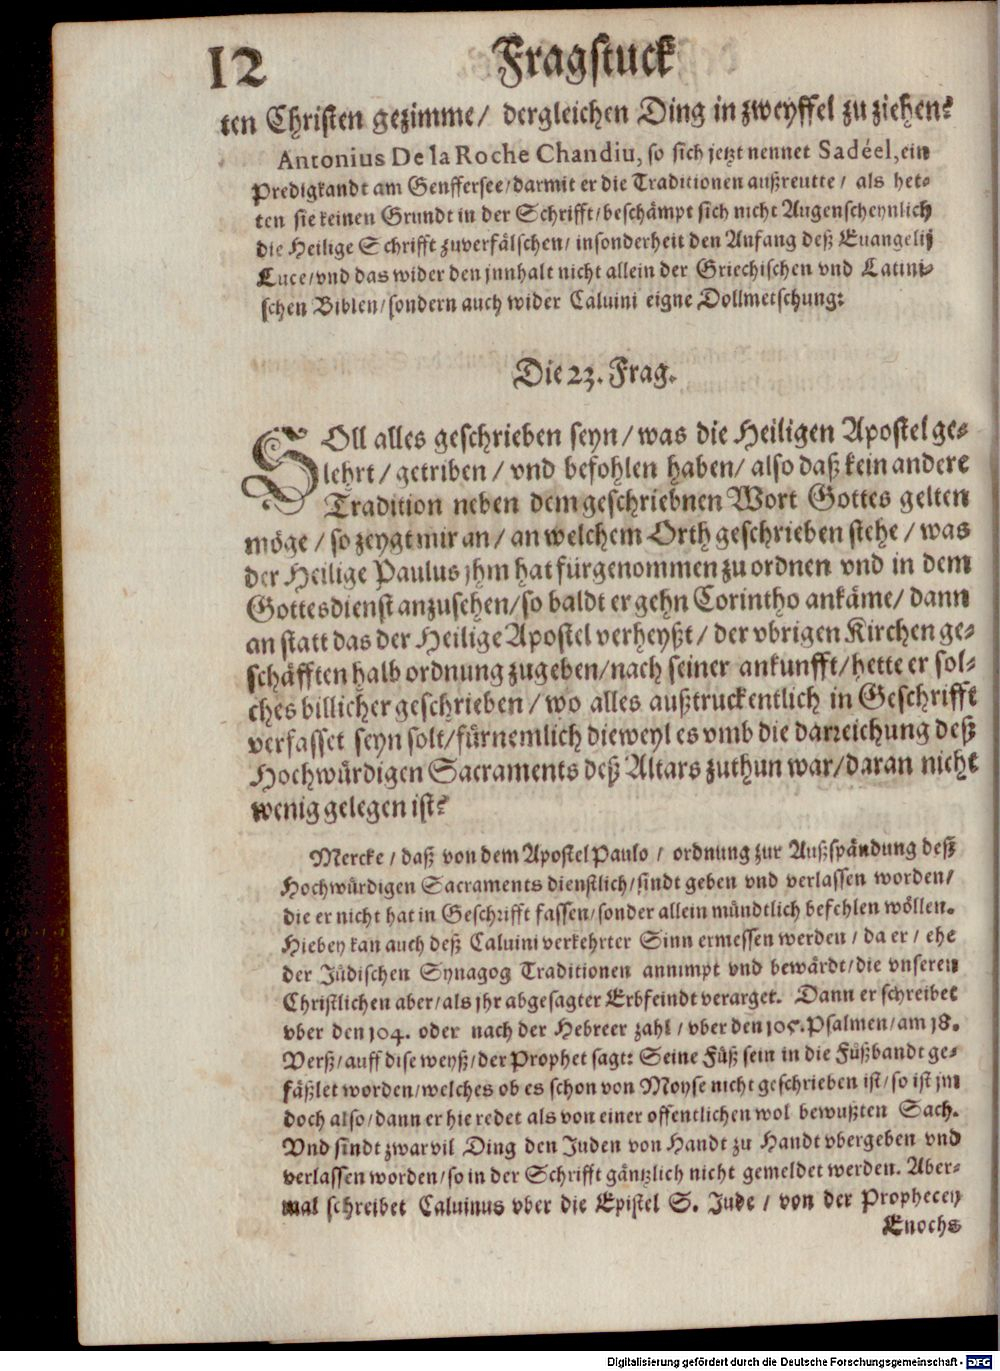 12 Fragstuck
ten Christen gezimme/ dergleichen Ding in zweyffel zu ziehen?
Antonius De la Roche Chandiu, so sich jetzt nennet Sadéel, ein
Predigkandt am Genffersee/darmit er die Traditionen außreutte/ als het-
ten sie keinen Grundt in der Schrifft/beschämpt sich nicht Augenscheynlich
die Heilige Schrifft zuverfälschen/ insonderheit den Anfang deß Euangelij
Luce/vnd das wider den jnnhalt nicht allein der Griechischen vnd Latini-
schen Biblen/sondern auch wider Caluini eigne Dollmetschung:
Die 23. Frag.
SOll alles geschrieben seyn/ was die Heiligen Apostel ge-
lehrt/ getriben/ vnd befohlen haben/ also daß kein andere
Tradition neben dem geschriebnen Wort Gottes gelten
möge/ so zeygt mir an/ an welchem Orth geschrieben stehe/ was
der Heilige Paulus jhm hat fürgenommen zu ordnen vnd in dem
Gottesdienst anzusehen/so baldt er gehn Corintho ankäme/ dann
an statt das der Heilige Apostel verheyßt/ der vbrigen Kirchen ge-
schäfften halb ordnung zugeben/nach seiner ankunfft/hette er sol-
ches billicher geschrieben/ wo alles außtruckentlich in Geschrifft
verfasset seyn solt/fürnemlich dieweyl es vmb die darreichung deß
Hochwürdigen Sacraments deß Altars zuthun war/daran nicht
wenig gelegen ist?
Mercke/ daß von dem Apostel Paulo/ ordnung zur Außspändung deß
Hochwürdigen Sacraments dienstlich/sindt geben vnd verlassen worden/
die er nicht hat in Geschrifft fassen/sonder allein mündtlich befehlen wöllen.
Hiebey kan auch deß Caluini verkehrter Sinn ermessen werden/ da er/ ehe
der Jüdischen Synagog Traditionen annimpt vnd bewärdt/die vnseren
Christlichen aber/als jhr abgesagter Erbfeindt verarget. Dann er schreibet
vber den 104. oder nach der Hebreer zahl/ vber den 105. Psalmen/am 18.
Verß/auff dise weyß/der Prophet sagt: Seine Füß sein in die Füßbandt ge-
fäßlet worden/welches ob es schon von Moyse nicht geschrieben ist/so ist jm
doch also/dann er hie redet als von einer offentlichen wol bewußten Sach.
Vnd sindt zwar vil Ding den Juden von Handt zu Handt vbergeben vnd
verlassen worden/so in der Schrifft gäntzlich nicht gemeldet werden. Aber-
mal schreibet Caluinus vber die Epistel S. Jude/ von der Prophecey
Enochs
Digitalisierung gefördert durch die Deutsche Forschungsgemeinschaft - DFG